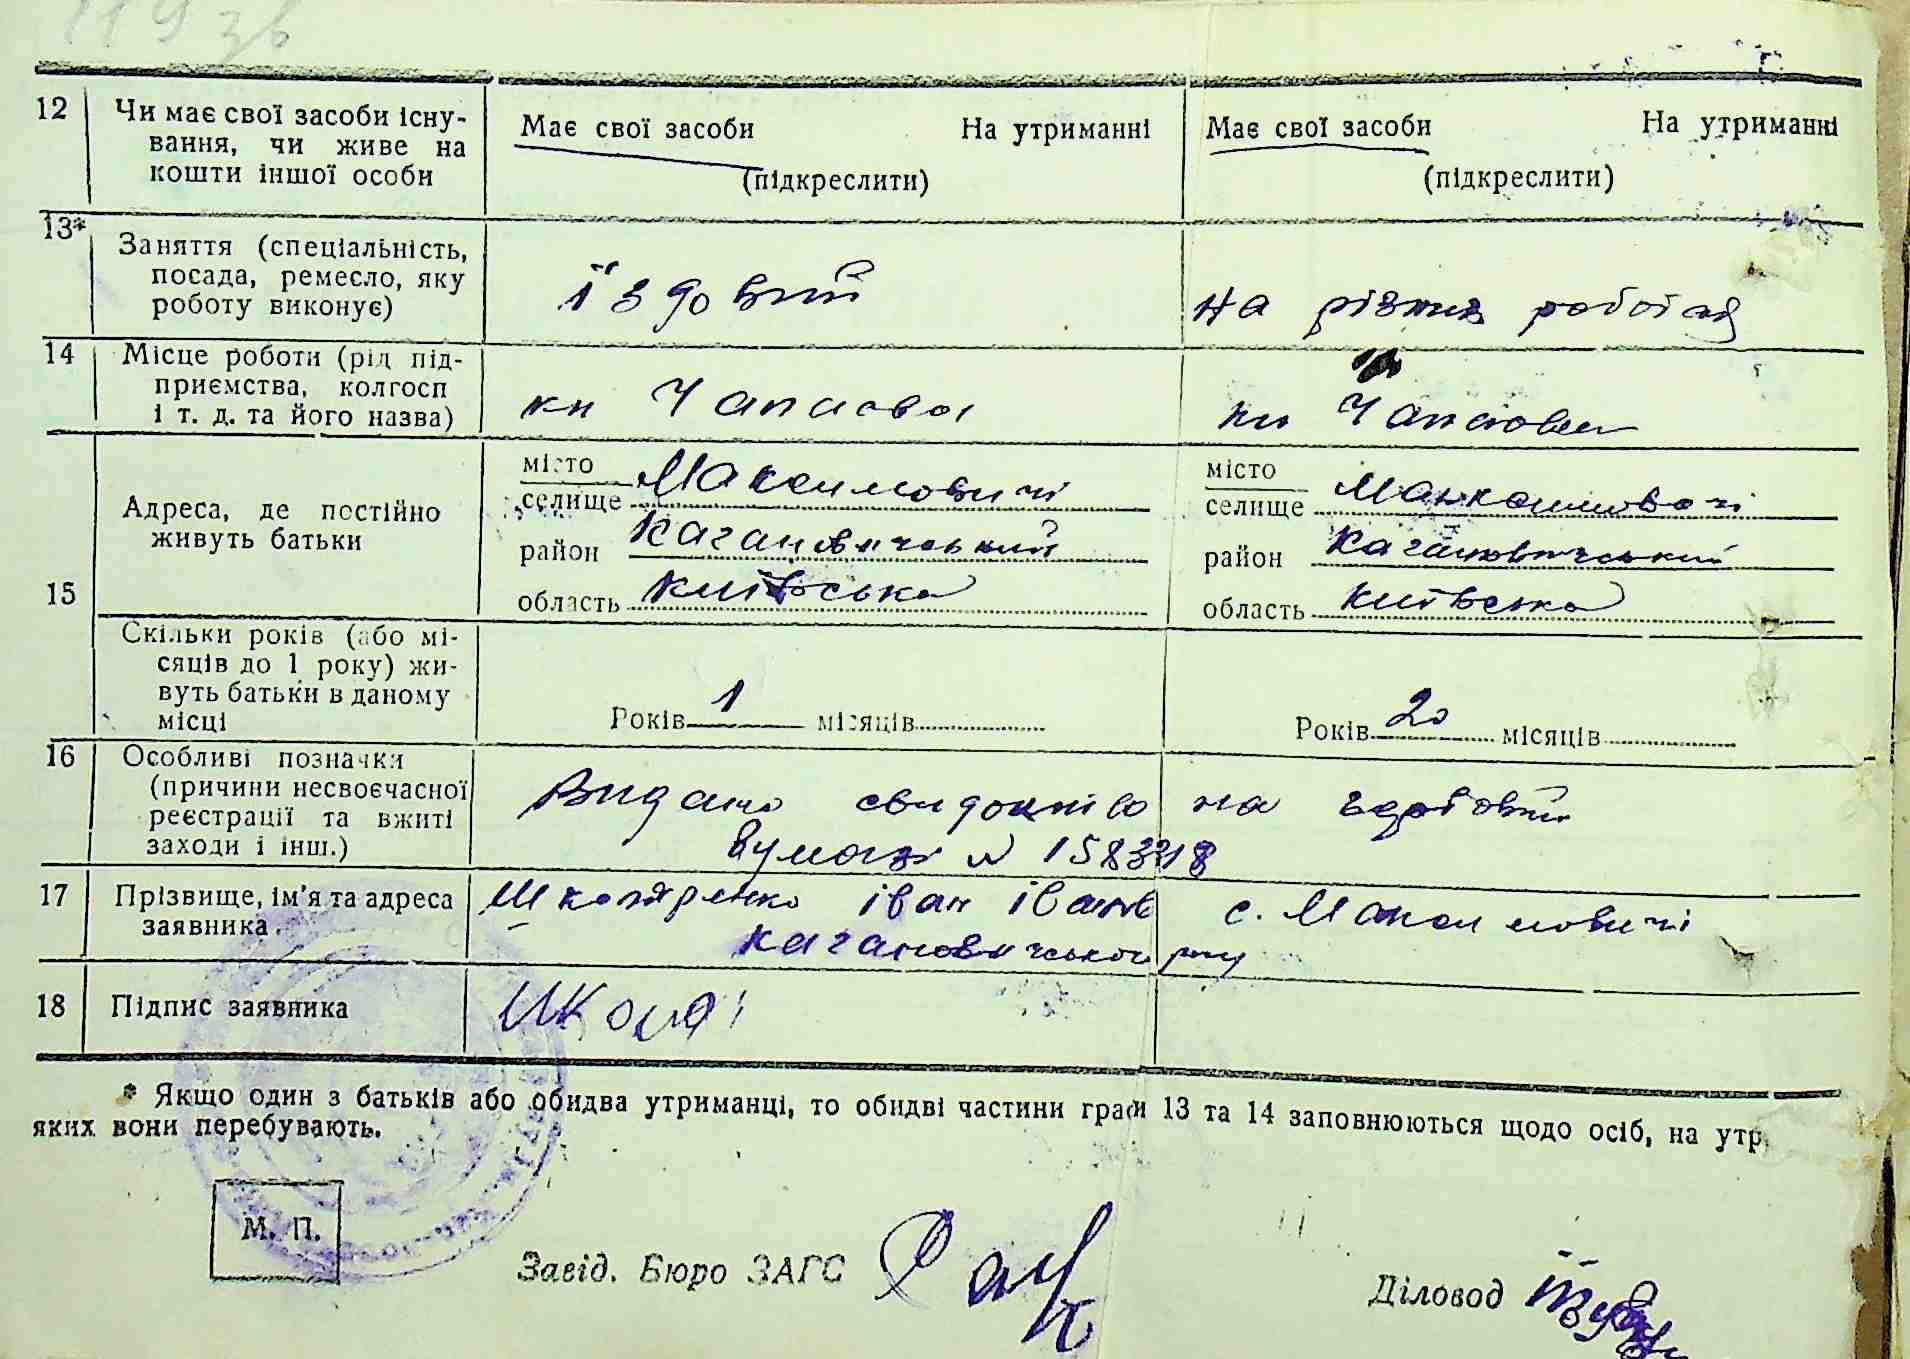 119 зв
12 Чи має свої засоби існу-
вання, чи живе на
кошти іншої особи
Має свої засоби На утриманні
(підкреслити)
Має свої засоби На утриманні
(підкреслити)
13* Заняття (спеціальність,
посада, ремесло, яку
роботу виконує)
їздовий
на різних роботах
14 Місце роботи (рід під-
приємства, колгосп
і т. д. та його назва)
кп Чапаєва
Чапаєва
15
Адреса, де постійно
живуть батьки
місто
селище Максимовичі
район Кагановичський
область Київська
місто
селище Максимовичі
район Кагановичський
область Київська
Скільки років (або мі-
сяців до 1 року) жи-
вуть батьки в даному
місці
Років 1 місяців
Років 20 місяців
16 Особливі позначки
(причини несвоєчасної
реєстрації та вжиті
заходи і інш.)
Видано свидоцтво на гербовій
бумазі № 158318
17 Прізвище, ім'я та адреса
заявника.
Школяренко іван іванов с. Максимовичі
Кагановичського р-ну
18 Підпис заявника
Школя
* Якщо один з батьків або обидва утриманці, то обидві частини графи 13 та 14 заповнюються щодо осіб, на утр
яких вони перебувають.
М. П.
Завід. Бюро ЗАГС
Діловод